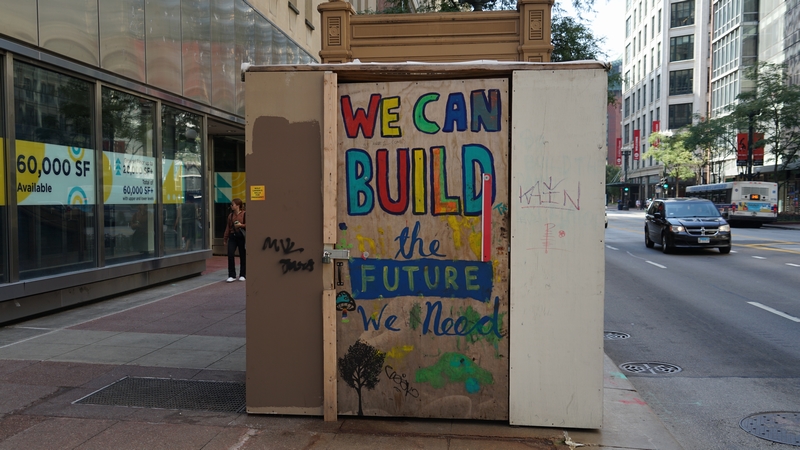 60,000 SF
Available
60,000 SF+
WE CAN
BUILD
the
FUTURE
We Need